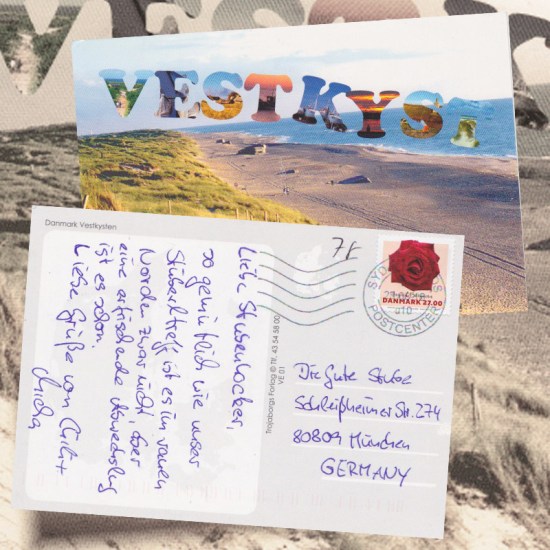 VESTKYST
Danmark Vestkysten
Liebe Stubenhocker,
so gemütlich wie unser
Stüberltreff ist es im rauen
Norden zwar nicht, aber
eine erfrischende Abwechslung
ist es schon.
Liebe Grüße von
Micha
7 E
DANMARK 27.00
SYD
POSTCENTER
Trojaborgs Forlag © Tlf. 43 54 58 00
VE 01
Die Gute Stube
Schleißheimer Str. 274
80809 München
GERMANY